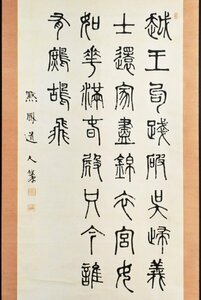 越王句踐破吳歸義
士還家盡錦衣宮女
如花滿春殿只今惟
有鷓鴣飛
黙鳳道人篆